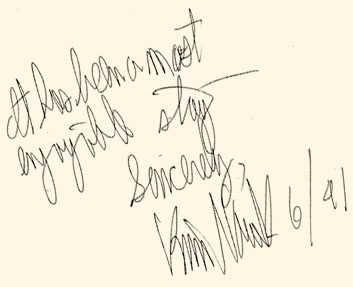 It has been a most
enjoyable stay
Sincerely,
6/91